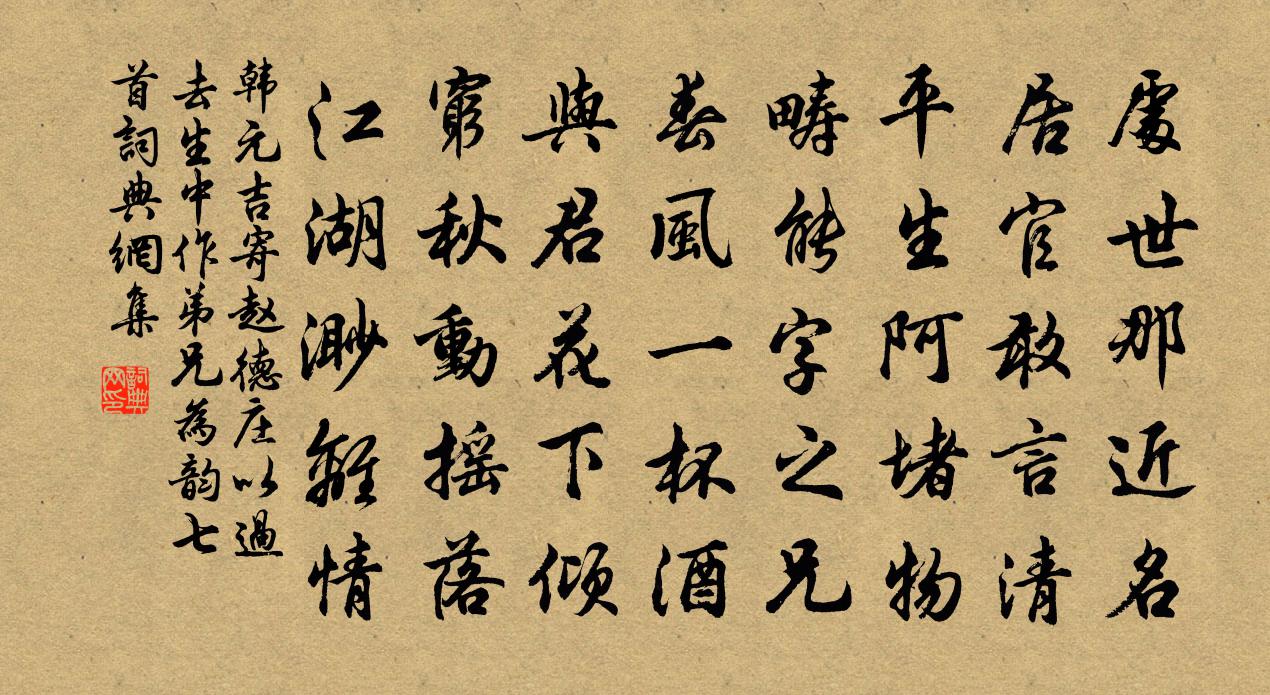 處世那近名
居官敢言清
平生阿堵物
疇能字之兄
春風一杯酒
與君花下傾
窮秋動摇落
江湖渺離情
韩元吉寄赵德庄以過
去生中作弟兄為韵七
首詞典網集
詞典
网印